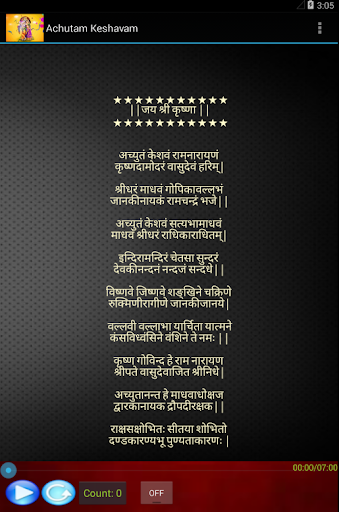 3:05
Achutam Keshavam
★★★★★★★★★★★
||जय श्री कृष्णा ||
★★★★★★★★★★★
अच्युतं केशवं रामनारायणं
कृष्णदामोदरं वासुदेवं हरिम्|
श्रीधरं माधवं गोपिकावल्लभं
जानकीनायकं रामचन्द्रं भजे||
अच्युतं केशवं सत्यभामाधवं
माधवं श्रीधरं राधिकाराधितम्|
इन्दिरामन्दिरं चेतसा सुन्दरं
देवकीनन्दनं नन्दजं सन्दधे||
विष्णवे जिष्णवे शङ्खिने चक्रिणे
रुक्मिणीरागीणे जानकीजानये|
वल्लवी वल्लाभा यार्चिता यात्मने
कंसविध्वंसिने वंशिने ते नमः ||
कृष्ण गोविन्द हे राम नारायण
श्रीपते वासुदेवाजित श्रीनिधे|
अच्युतानन्त हे माधवाधोक्षज
द्वारकानायक द्रौपदीरक्षक||
राक्षसक्षोभितः सीतया शोभितो
दण्डकारण्यभू पुण्यताकारणः |
00:00/07:00
Count: 0
OFF